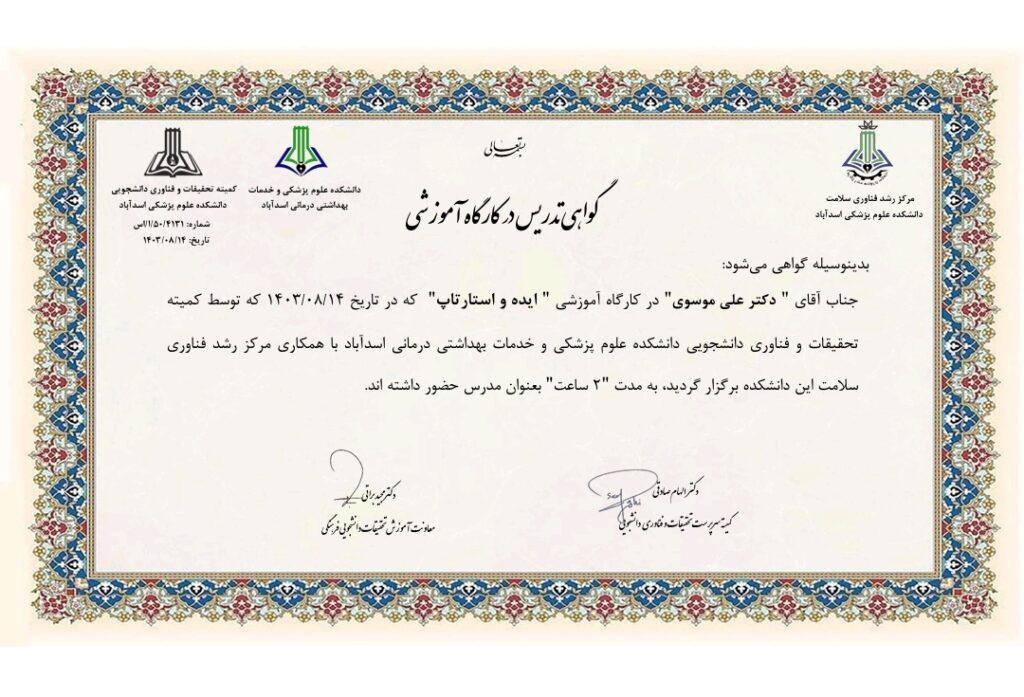 بسمه تعالی
گواهی تدریس در کارگاه آموزشی
مرکز رشد فناوری سلامت
دانشکده علوم پزشکی اسدآباد
دانشکده علوم پزشکی و خدمات
بهداشتی درمانی اسدآباد
کمیته تحقیقات و فناوری دانشجویی
دانشکده علوم پزشکی اسدآباد
شماره: ۵۰/۴۱۳۱/ا/اس
تاریخ: ۱۴۰۳/۰۸/۱۴
بدینوسیله گواهی می‌شود:
جناب آقای " دکتر علی موسوی" در کارگاه آموزشی " ایده و استارتاپ" که در تاریخ ۱۴۰۳/۰۸/۱۴ که توسط کمیته
تحقیقات و فناوری دانشجویی دانشکده علوم پزشکی و خدمات بهداشتی درمانی اسدآباد با همکاری مرکز رشد فناوری
سلامت این دانشکده برگزار گردید، به مدت "۲ ساعت" بعنوان مدرس حضور داشته اند.
دکتر الهام صادقی
کمیته سرپرست تحقیقات و فناوری دانشجویی
دکتر مجید براتی
معاونت آموزش تحقیقات دانشجویی فرهنگی